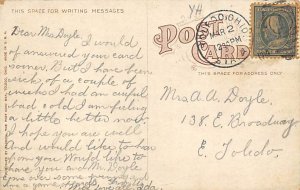 THIS SPACE FOR WRITING MESSAGES
Dear Mrs Doyle. I would
of answered your card
sooner. But I have been
sick, of a couple of
weeks I had an awful
bad cold I am feeling
a little better now.
I hope you are well
And would like to hear
from you Would like to
have you and Mr Doyle
come over some evening and
have a game
YH
POST CARD
TOLEDO, OHIO
MAR 2
PM
STA.
THIS SPACE FOR ADDRESS ONLY
Mrs A. A. Doyle,
138. E. Broadway
E. Toledo.